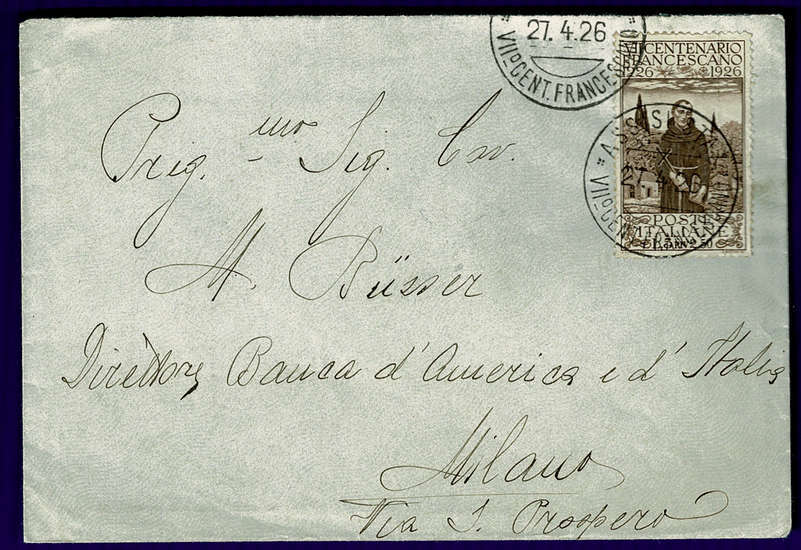 27.4.26
VIIº CENT. FRANCESCANO
VII CENTENARIO
FRANCESCANO
1226 1926
ASSISI
27.4.26
VIIº CENT.
POSTE
ITALIANE
Preg.mo Sig. Cav.
M. Büsser
Direttore Banca d'America e d'Italia
Milano
Via S. Prospero